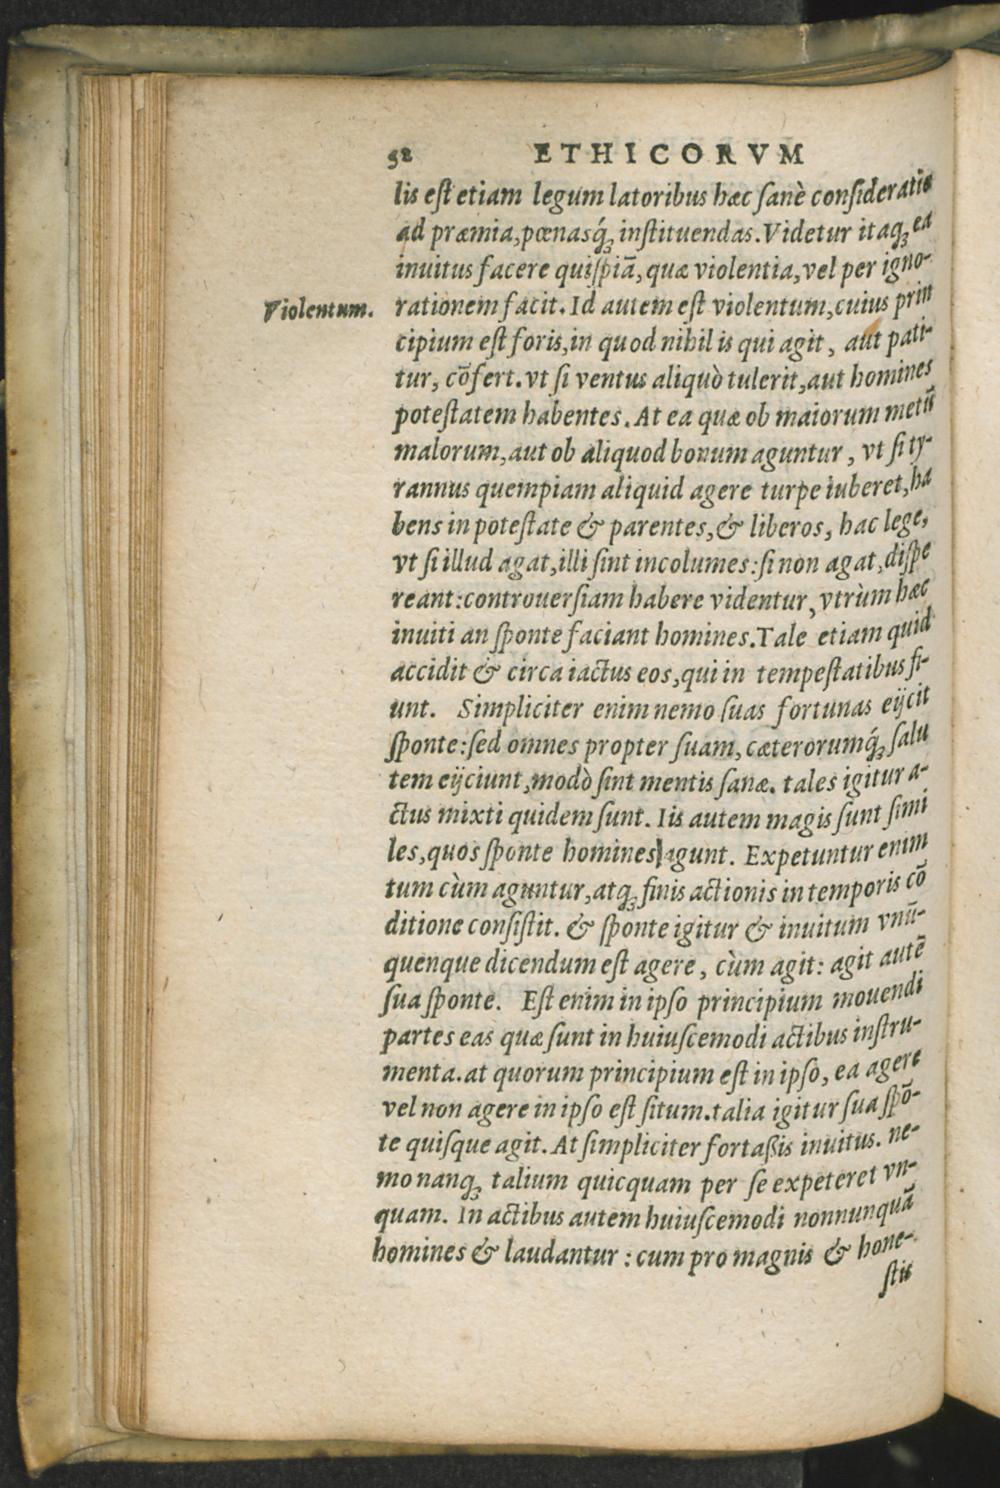 52 ETHICORVM
lis eſt etiam legum latoribus hæc ſanè conſideratio
ad præmia,pœnasq́; inſtituendas.Videtur itaq; ea
inuitus facere quiſpiã, quæ violentia,vel per igno-
Violentum.
rationem facit. Id autem eſt violentum,cuius prin
cipium eſt foris,in quod nihil is qui agit, aut pati-
tur, cõfert. vt ſi ventus aliquò tulerit,aut homines
poteſtatem habentes. At ea quæ ob maiorum metũ
malorum,aut ob aliquod bonum aguntur, vt ſi ty-
rannus quempiam aliquid agere turpe iuberet,ha
bens in poteſtate & parentes,& liberos, hac lege,
vt ſi illud agat,illi ſint incolumes:ſi non agat,diſpe
reant:controuerſiam habere videntur, vtrùm hæc
inuiti an ſponte faciant homines.Tale etiam quid
accidit & circa iactus eos,qui in tempeſtatibus fi-
unt. Simpliciter enim nemo ſuas fortunas eijcit
ſponte:ſed omnes propter ſuam, cæterorumq́; ſalu
tem eijciunt,modò ſint mentis ſanæ. tales igitur a-
ctus mixti quidem ſunt. Iis autem magis ſunt ſimi
les,quos ſponte homines agunt. Expetuntur enim
tum cùm aguntur,atq; finis actionis in temporis cõ
ditione conſiſtit. & ſponte igitur & inuitum vnũ-
quenque dicendum eſt agere, cùm agit: agit autẽ
ſua ſponte. Eſt enim in ipſo principium mouendi
partes eas quæ ſunt in huiuſcemodi actibus inſtru-
menta.at quorum principium eſt in ipſo, ea agere
vel non agere in ipſo eſt ſitum.talia igitur ſua ſpõ-
te quiſque agit. At ſimpliciter fortaßis inuitus. ne-
mo nanq; talium quicquam per ſe expeteret vn-
quam. In actibus autem huiuſcemodi nonnunquã
homines & laudantur : cum pro magnis & hone-
ſtis